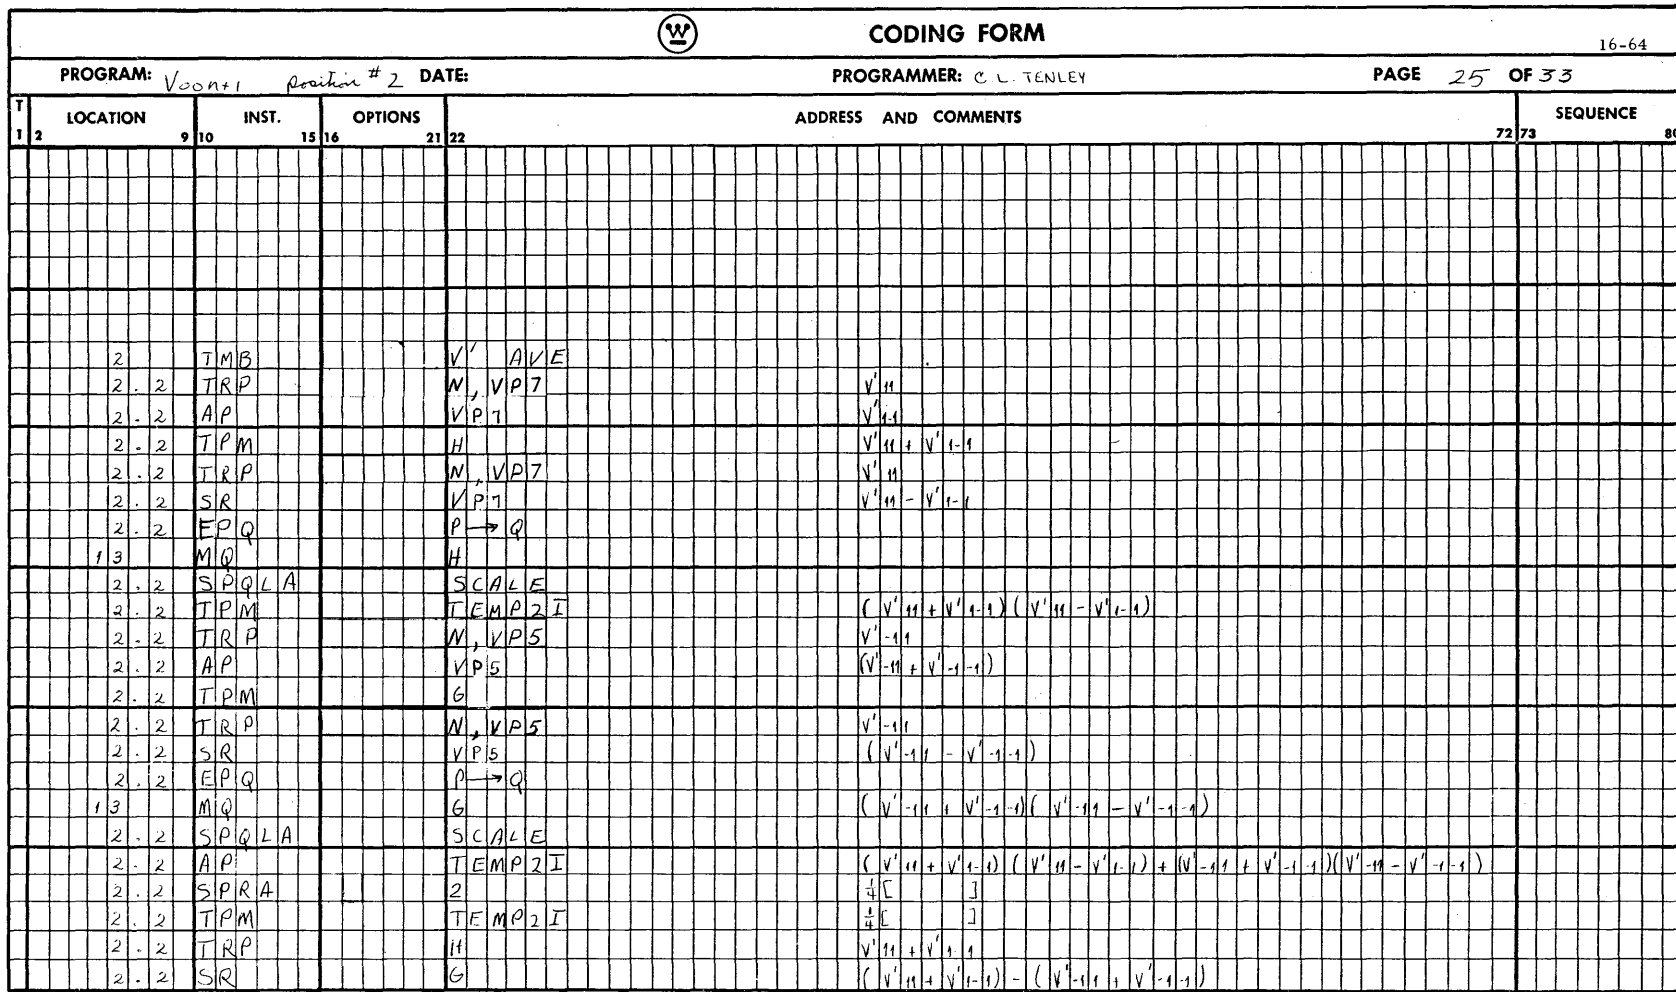 W CODING FORM
16-64
PROGRAM: Voon+1 Position #2 DATE: PROGRAMMER: C L. TENLEY PAGE 25 OF 33
T LOCATION INST. OPTIONS ADDRESS AND COMMENTS SEQUENCE
1 2 9 10 15 16 21 22 72 73 80
2 TMB V' AVE
2.2 TRP N, VP7 V'11
2.2 AP VP7 V'1-1
2.2 TPM H V'11 + V'1-1
2.2 TRP N, VP7 V'11
2.2 SR VP7 V'11 - V'1-1
2.2 EPQ P → Q
13 MQ H
2.2 SPQLA SCALE
2.2 TPM TEMP2I (V'11 + V'1-1)(V'11 - V'1-1)
2.2 TRP N, VP5 V'-11
2.2 AP VP5 (V'-11 + V'-1-1)
2.2 TPM G
2.2 TRP N, VP5 V'-11
2.2 SR VP5 (V'-11 - V'-1-1)
2.2 EPQ P → Q
13 MQ G (V'-11 + V'-1-1)(V'-11 - V'-1-1)
2.2 SPQLA SCALE
2.2 AP TEMP2I (V'11 + V'1-1)(V'11 - V'1-1) + (V'-11 + V'-1-1)(V'-11 - V'-1-1)
2.2 SPRA 2 ¼[ ]
2.2 TPM TEMP2I ¼[ ]
2.2 TRP H V'11 + V'1-1
2.2 SR G (V'11 + V'1-1) - (V'-11 + V'-1-1)